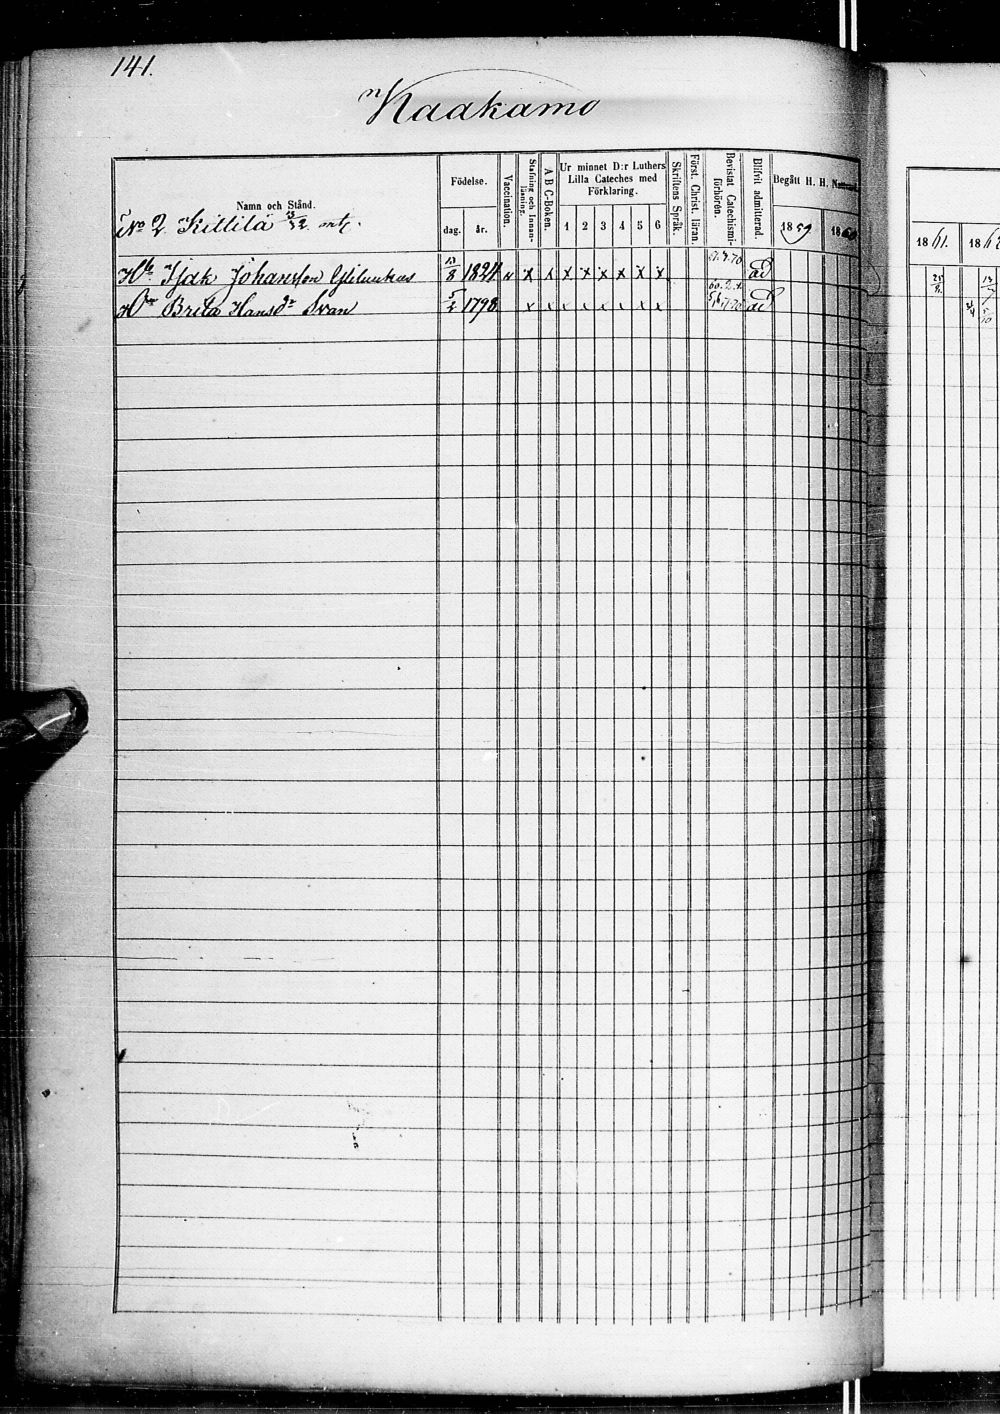 141.
Kaakamo
Namn och Stånd.
Födelse.
dag. år.
Vaccination.
Stafning och Innanläsning.
A B C-Boken.
Ur minnet D:r Luthers Lilla Cateches med Förklaring.
1 2 3 4 5 6
Skriftens Språk.
Först. Christ. läran.
Bevistat Catechismiförhören.
Blifvit admitterad.
Begått H. H. Nattvard.
1859 1860
1861. 1862
No 2 Kittilä 23/32 mtl.
Isak Johansson 13/8 1824 x x x x x x x x ad
Brita Hansdr Svan 5/2 1798 x x x x x x x x ad